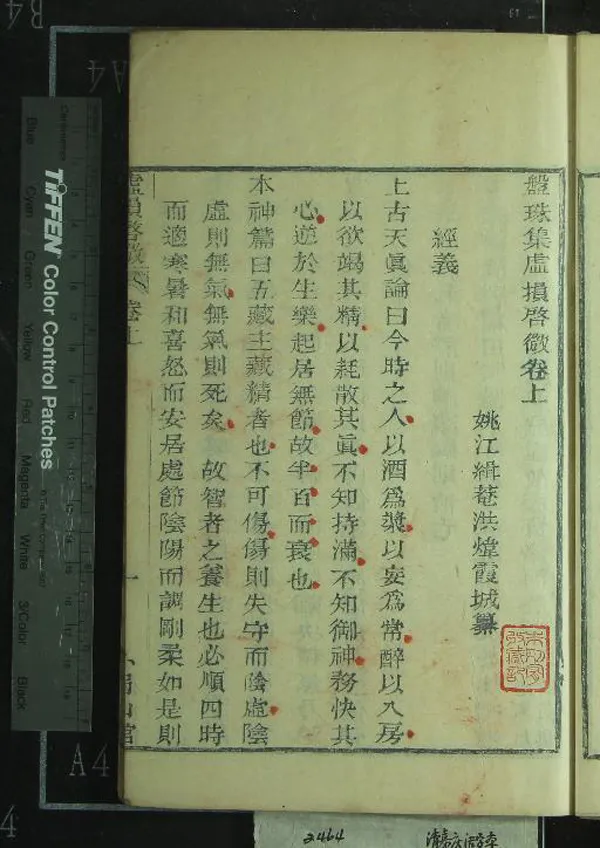 盤珠集虛損啓微卷上
姚江緝菴洪煒霞城纂
經義
上古天眞論曰今時之人以酒爲漿以妄爲常醉以入房
以欲竭其精以耗散其眞不知持滿不知御神務快其
心逆於生樂起居無節故半百而衰也
本神篇曰五藏主藏精者也不可傷傷則失守而陰虛陰
虛則無氣無氣則死矣 故智者之養生也必順四時
而適寒暑和喜怒而安居處節陰陽而調剛柔如是則
虛損啓微 卷上
一
山館
TIFFEN Color Control Patches
Blue
Cyan
Green
Yellow
Red
Magenta
White
3/Color
Black
A4
A4
B4
4
2464